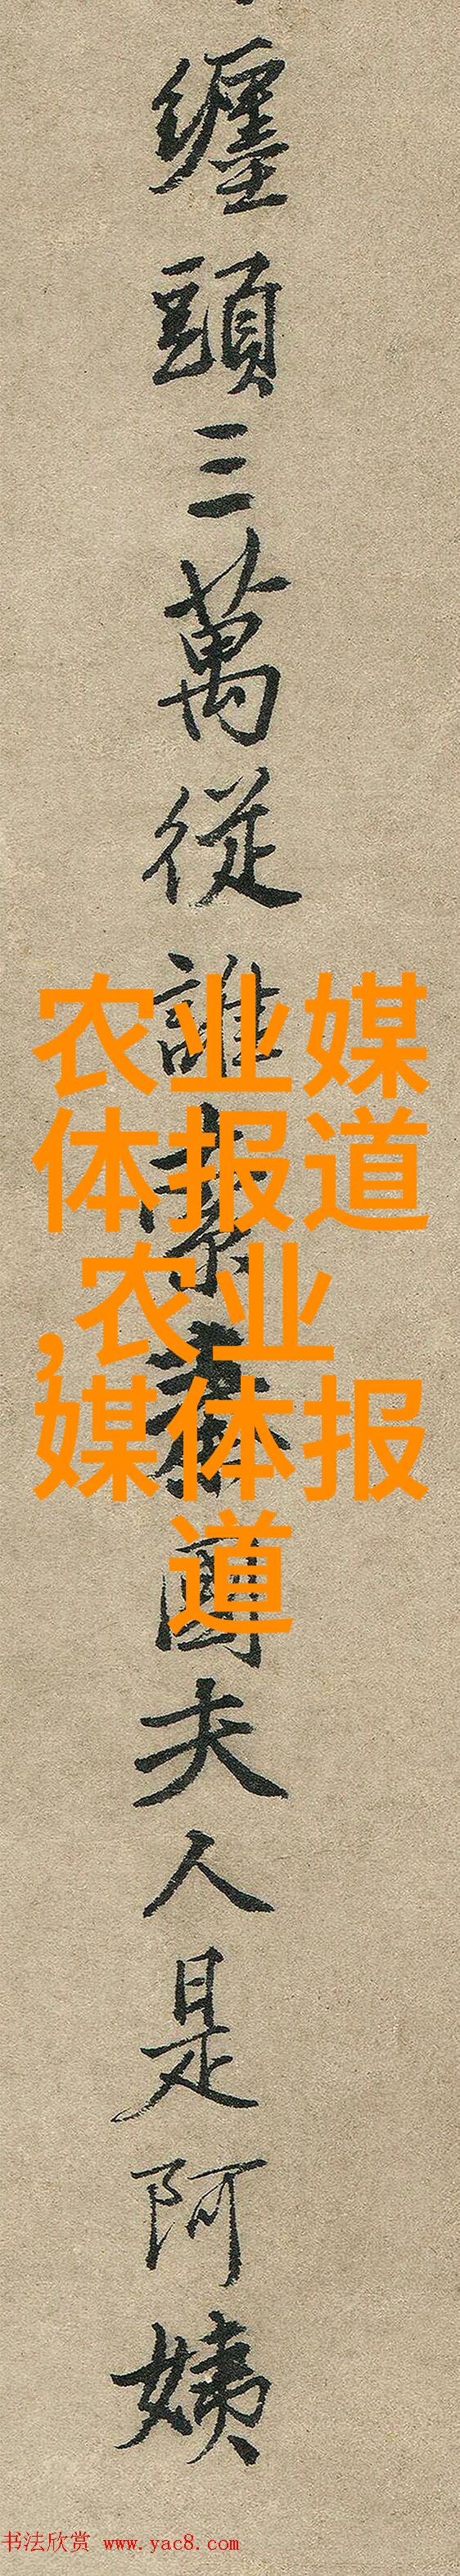 纏頭三萬從誰索秦國夫人是阿姨
农业媒
体报道
,农业
媒体报
道
书法欣赏 www.yac8.com